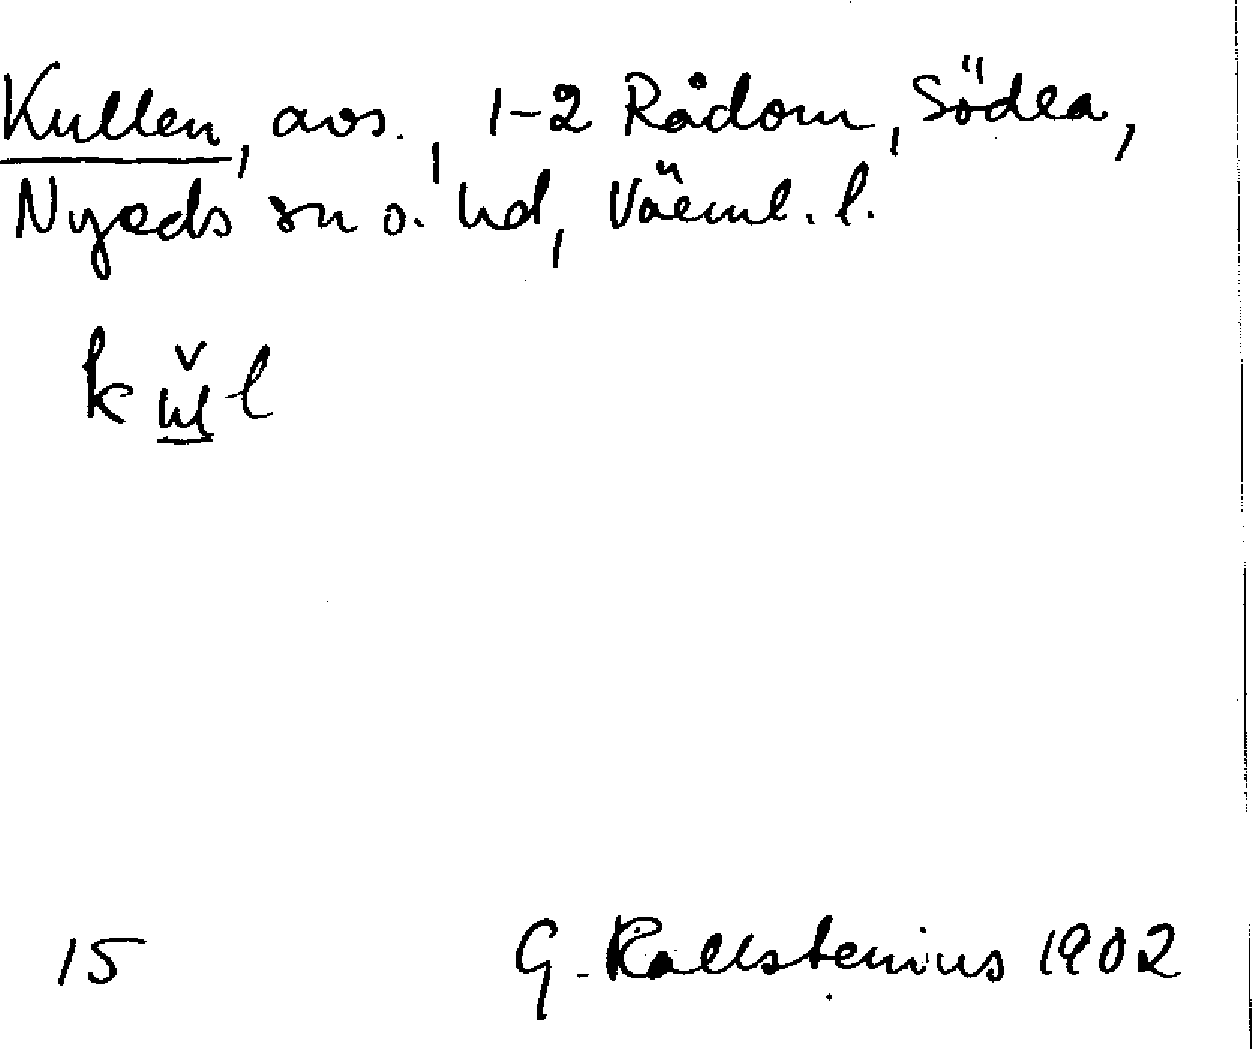 Kullen, avs., 1-2 Rådom, Södra,
Nyeds sn o. hd, Värml. l.
15 G. Kallstenius 1902